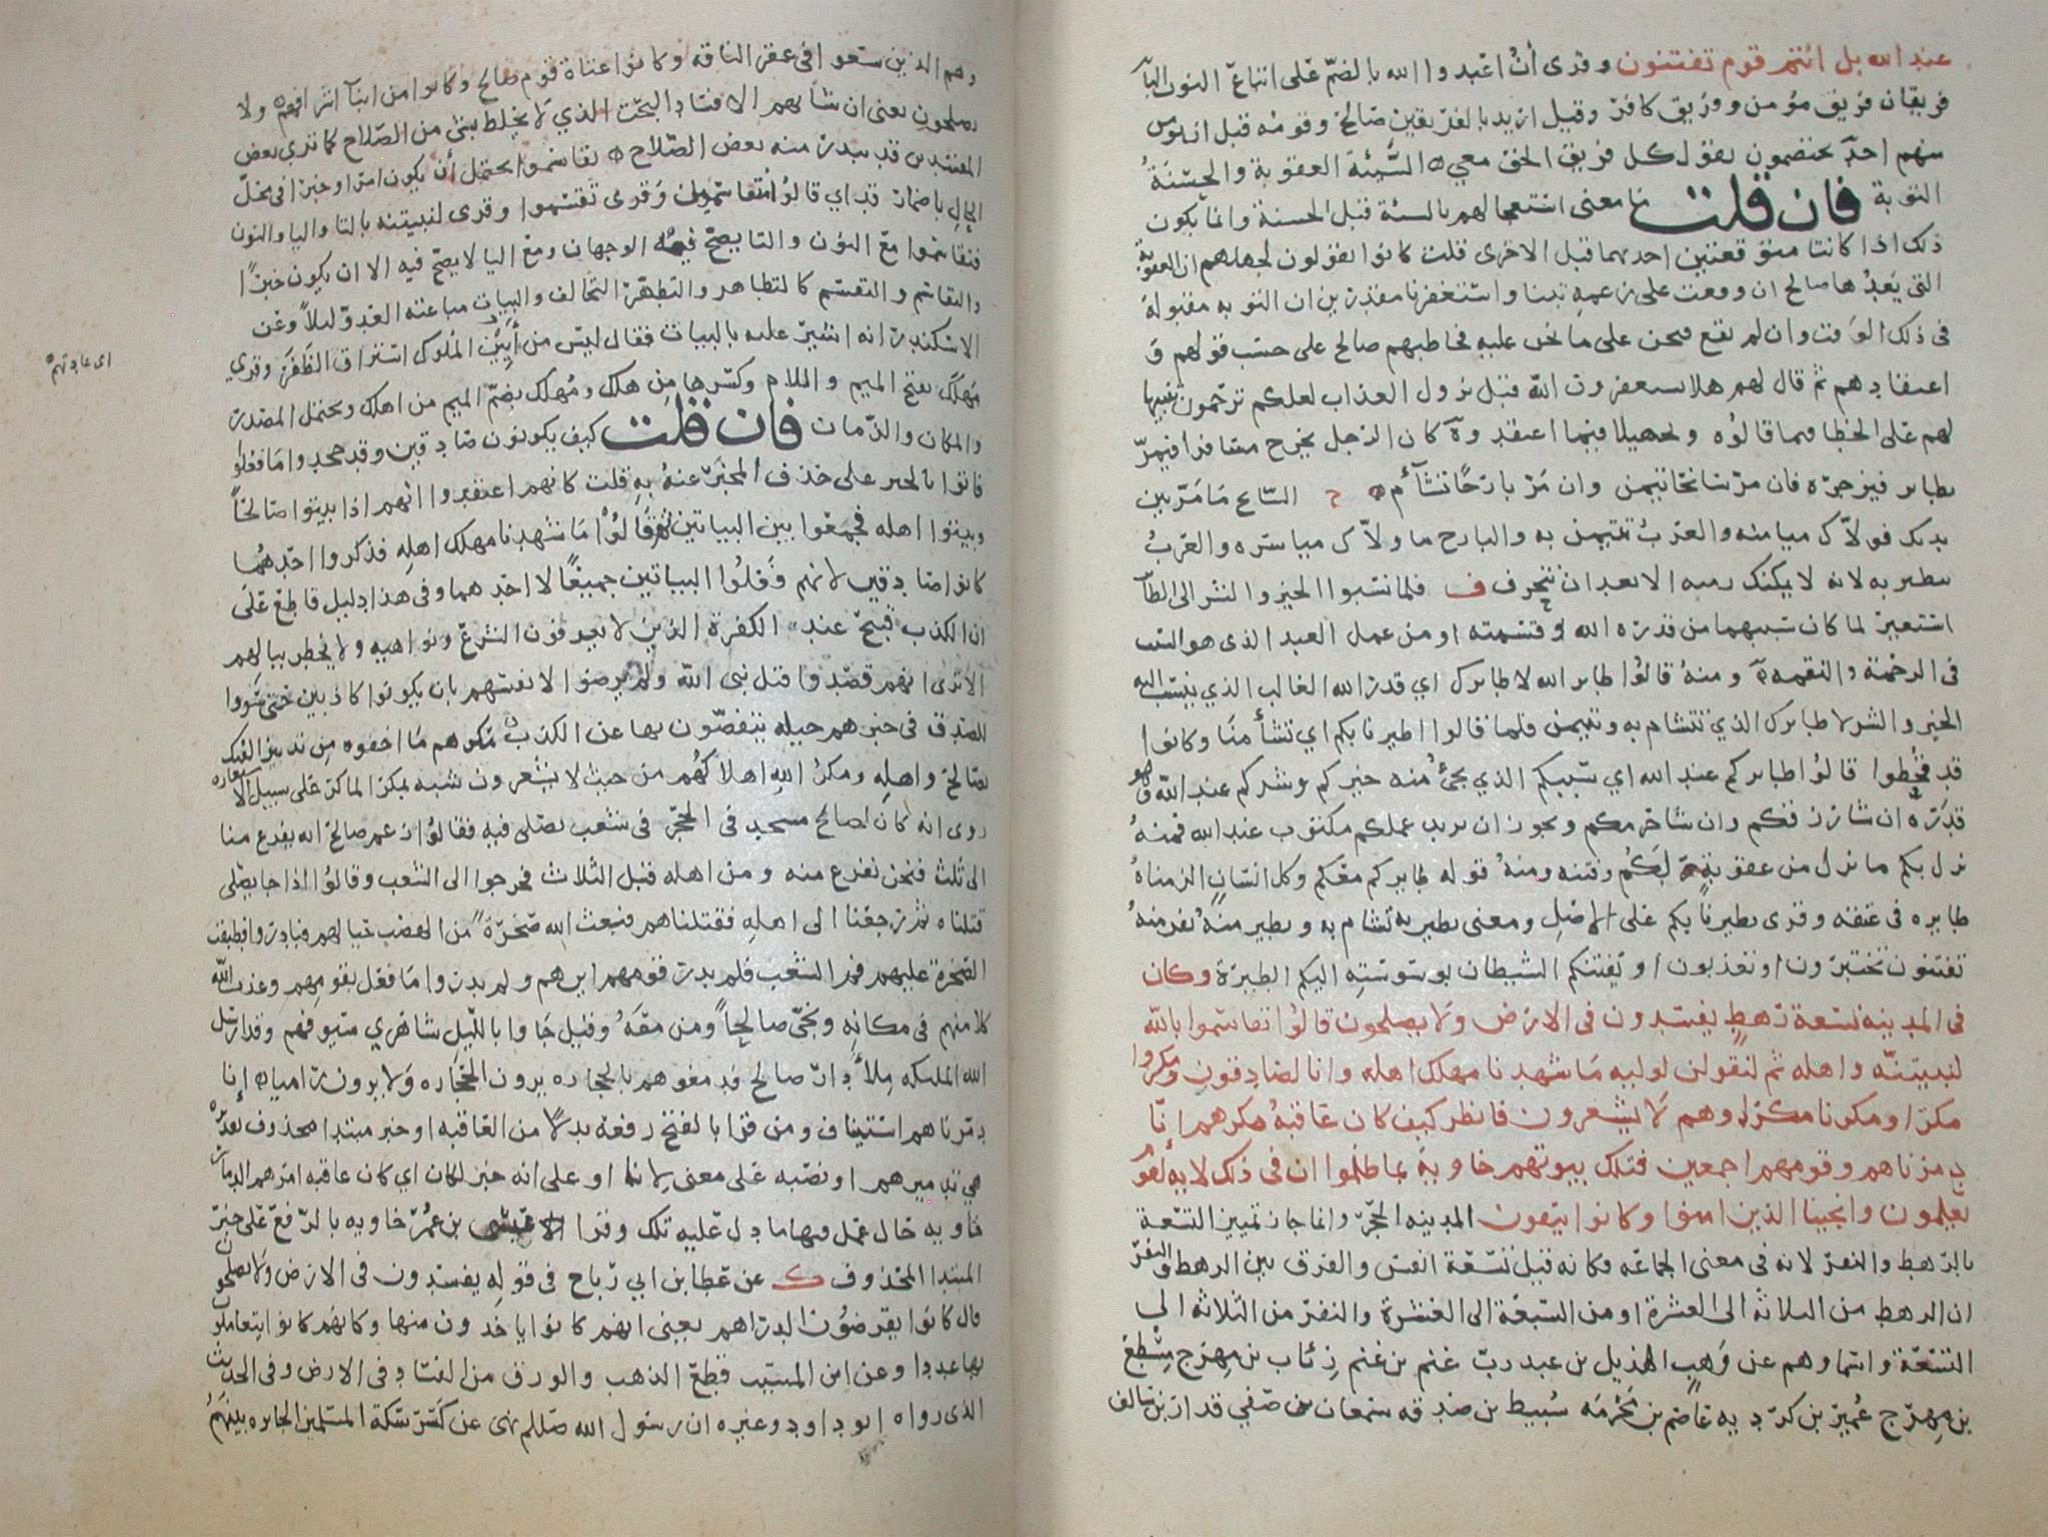 عند الله بل انتم قوم تفتنون وقرى أنُ اعبدوا الله بالضمّ على اتباع النون البآ
فريقان فريق مؤمن وفريق كافر وقيل اريد بالفريقين صالح وقومه قبل ان يومن
منهم احدٌ يختصمون يقول كل فريق الحق معي ه السيّئة العقوبة والحسنةُ
التوبة فان قلت ما معنى استعجالهم بالسئة قبل الحسنة وانما يكون
ذلك اذا كانتا متوقعتين احدىهما قبل الاخرى قلت كانوا يقولون لجهلهم ان العقوبة
التى يَعِدُها صالح ان وقعت على زعمه تبنا واستغفرنا مقدرين ان التوبه مقبولة
فى ذلك الوقت وان لم تقع فنحن على ما نحن عليه فخاطبهم صالح على حسب قولهم و
اعتقادهم ثم قال لهم هلا تستغفرون اللّه قبل نزول العذاب لعلكم ترحمون تنبيها
لهم على الخطا فىما قالوُه وتجهيلا فيما اعتقدوهٓ كان الرجل يخرج مسافرا فيمرّ
بطاىر فيزجره فان مرّ سانحا تيمن وان مرّ بارحًا تشآأم ه ح السّانح مَا مَرّ بين
يدىك فولاّك ميامنه والعربُ تتيمن به والبارح ما ولاّك مياسره والعربُ
تتطىر به لانه لا يمكنك رميه الا بعد ان تنحرف ف فلما نسبوا الخير والشر الى الطآ
استعير لما كان سببهما من قدره الله وقسمته او من عمل العبد الذى هو السبب
فى الرحمة والنقمهٓ ومنهُ قالوُا طاىر الله لا طاىرك اي قدرُ الله الغالب الذي ينسب اليه
الخير والشر لا طاىرك الذي تتشام به وتتيمن فلما قالوا اطيرنا بكم اي تشأمنَا وكانوا
قد قحُطوا قالوُا طاىركم عند الله اي سببكم الذي يجئُ منه خيركم وشركم عند اللّه وهو
قدَرُه ان شا رزقكم وان شا حرمكم ويجوز ان يريد عملكم مكتوب عند الله فمنهُ
نزل بكم ما نزل من عقوبةٍ لكُم وفتنه ومنهُ قوله طاىركم معكم وكل انسانٍ الزمناهُ
طاىره فى عنقه وقرى تطيرنا بكم على الاصلِ ومعنى تطير به تشام به وتطير منهُ نفر منهُ
تفتنون تختبرون او تعذبون او يفتنكم الشيطان بوسوسته اليكم الطيرة وكان
فى المدينه تسعة رهطٍ يفسدون فى الارض ولا يصلحون قالوُا تقاسموا باللّه
لنبيتنّه واهله ثم لنقولن لوليه مَا شهدنا مهلك اهله وانا لصادقون ومكروا
مكرا ومكرنا مكرا وهم لا يشعرون فانظر كيف كان عاقبهُ مكرهم انّا
دمرناهم وقومهم اجمعين فتلك بيوتهم خاويةً بما ظلموا ان فى ذلك لايةً لقوم
يعلمون وانجينا الذين امنوا وكانوا يتقون المدينه الحِجرُ وانما جاز تمييز التسعة
بالرّهط والنفر لانه فى معنى الجماعَه فكانه قيل تسّعة انفس والفرق بين الرهط والنفر
ان الرهط من الىلاثة الى العشرة او من السّبعَة الى العشرة والنفر من الثلاثه الى
التسّعَة واسماوهم عن وَهب الهذيل بن عبد ربّ غنم بن غنم رِئاب بن مِهرَج مِصْطع
بن مِهرَج عُمير بن كردبه عاصَم بن مَخْرمَه سُبيط بن صَدقه سمعان بن صَفي قدار بن سالف
وهم الذين سعوا فى عقر الناقه وكانوا عتاة قوم صالح وكانوا من ابنآ اشرافهم ه ولا
يصلحون يعنى ان شأنهم الافساد البحت الذي لا يخلط بشئ من الصّلاح كما ترى بعض
المفسدين قد يندر منه بعض الصّلاح ه تقاسموا يحتمل أن يكون امرا وخبرًا فى محلّ
الحال باضمار قد اي قالوُا متقاسمين وَقرى تَقسّموا وقرى لنبيتنه بالتا واليا والنون
فتقاسموا مع النون والتا يصحّ فيه الوجهان ومع اليا لا يصحّ فيه الا ان يكون خبرًا
والتقاسم والتقسّم كالتظاهر والتظهّر التحالف والبيات مباغته العدوّ ليلاً وعن
الاسكندر انه اشير عليه بالبيات فقال ليس من آيين الملوك استراق الظَفَر وقري
اى عادتهم
مَهلكَ بفتح الميم واللام وكسرها من هلك ومُهلك بضمّ الميم من اهلك ويحتمل المصدر
والمكان والزمان فان قلت كيف يكونون صَادقين وقد جحدوا مَا فعلوُا
فاتوا بالخبر على خلاف المخبَر عنهُ به قلت كانهم اعتقدوا انهم اذا بيتوا صَالحًا
وبيتوا اهله فجمعوا بين البياتين ثم قالوُا مَا شهدنا مهلك اهلهِ فذكروا احَدهُما
كانوا صَادقين لانهم فَعَلوُا البياتين جميعًا لا احَدهما وفى هذا دليل قاطع على
ان الكذب قبيح عند الكفرة الذين لا يعرفون الشرع ونواهيه ولا يخطر ببالهم
الا ترى انهم قصَدوا قتل نبى اللّه ولم يرضوا لانفسهم بان يكونوا كاذبين حتى سَوّوا
للصّدق فى خبرهم حيله يتفصّون بها عن الكذب مكرهم مَا اخفوه مِن تدبير الفتك
بصَالح واهلهِ ومكرُ اللهِ اهلاكُهم من حيث لا يشعرون شبه بمكر الماكر على سبيل الاستعاره
روى انه كان لصالح مسجد فى الحِجر فى شعب يصَلى فيه فقالوُا زعم صالح انه يفرغ منا
الى ثلث فنحن نفرغ منه ومن اهله قبل الثلاث فخرجوا الى الشعب وقالوُا اذا جا يصَلى
قتلناه ثم رجعنا الى اهلهِ فقتلناهم فبعث اللّه صَخرةً من الهضب حيالهم فبادروا فطبقت
الصّخرة عليهم فم الشعب فلم يدر قومهم اين هم ولم يدروا مَا فعل بقومِهم وعذب اللّه
كلا منهم فى مكانهِ ونجّى صالحًا ومن معَهُ وقيل جَاوا بالليل شاهري سيوفهم وقد ارسل
اللّه الملىكه مِلأَ دار صالح فدمغوهم بالحجاره يرون الحجاره ولا يرون راميا ه انا
دمّرناهم استيناف ومن قرا بالفتح رفعهُ بدلاً من العَاقبه او خبر مبتدا محذوف تقديره
هي تدميرهم او نصبَه على معنى لانا او على انه خبر لكان اي كان عاقبه امرهم الدمار
خاويه حَال عَمل فيها ما دل عَليه تلك وقرا عيسَى بن عُمر خاويه بالرّفع على خبر
المبتدا المحذوف ك عن عَطا بن ابي رباح فى قوله يفسدون فى الارض ولا يصلحون
قال كانوا يقرضُون الدراهم يعنى انهم كانوا ياخذون منها وكانهم كانوا يتعاملون
بها عددا وعن ابن المسيب قطع الذهب والورق من الفسَاد فى الارض وفى الحديث
الذى رواه ابو داود وغيره ان رسول الله صَللم نهى عن كسْر سكة المسلمين الجايزه بينهم